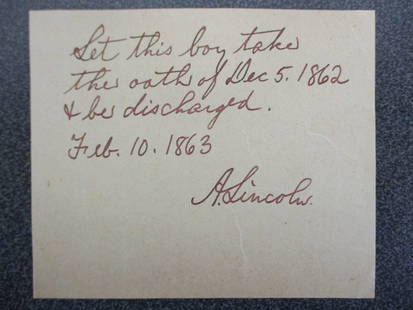 Let this boy take
the oath of Dec 5. 1862
& be discharged.
Feb. 10. 1863
A. Lincoln.